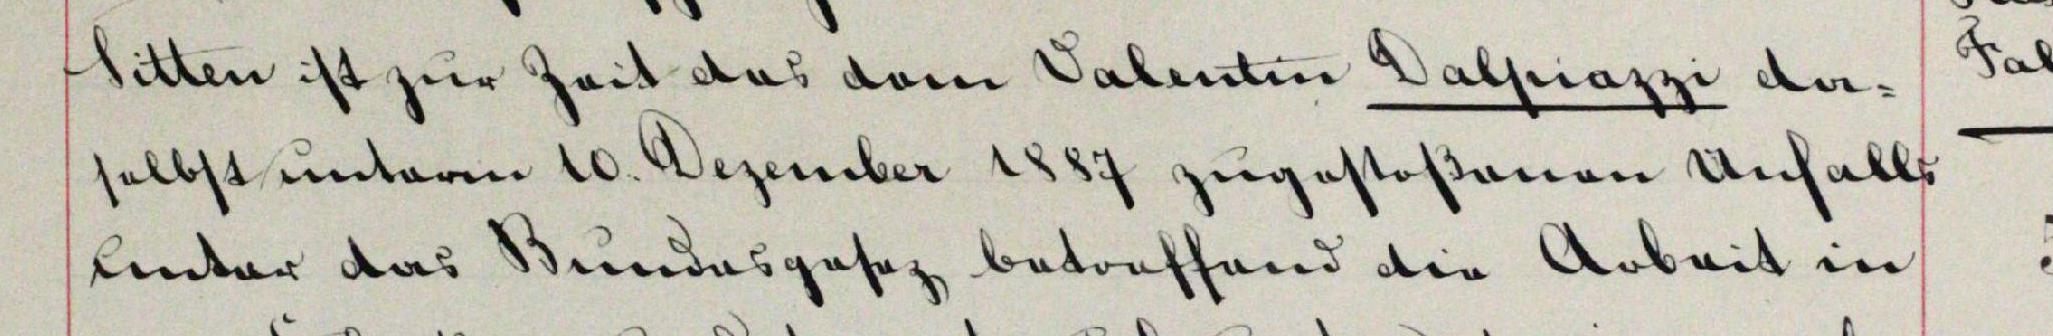 Sitten ist zur Zeit des dem Valentin Dalpiazzi da=
selbst unterm 10. Dezember 1887 zugestoßenen Unfalls
unter das Bundesgesez betreffend die Arbeit in